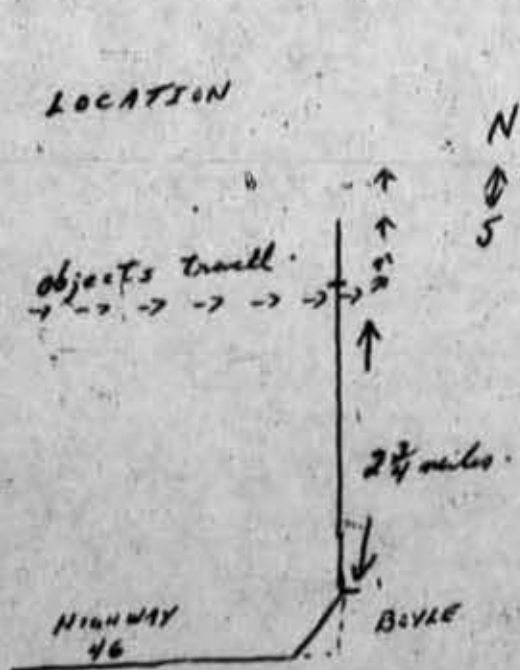 LOCATION
N
S
objects travell.
2 3/4 miles.
HIGHWAY
46
BOYLE